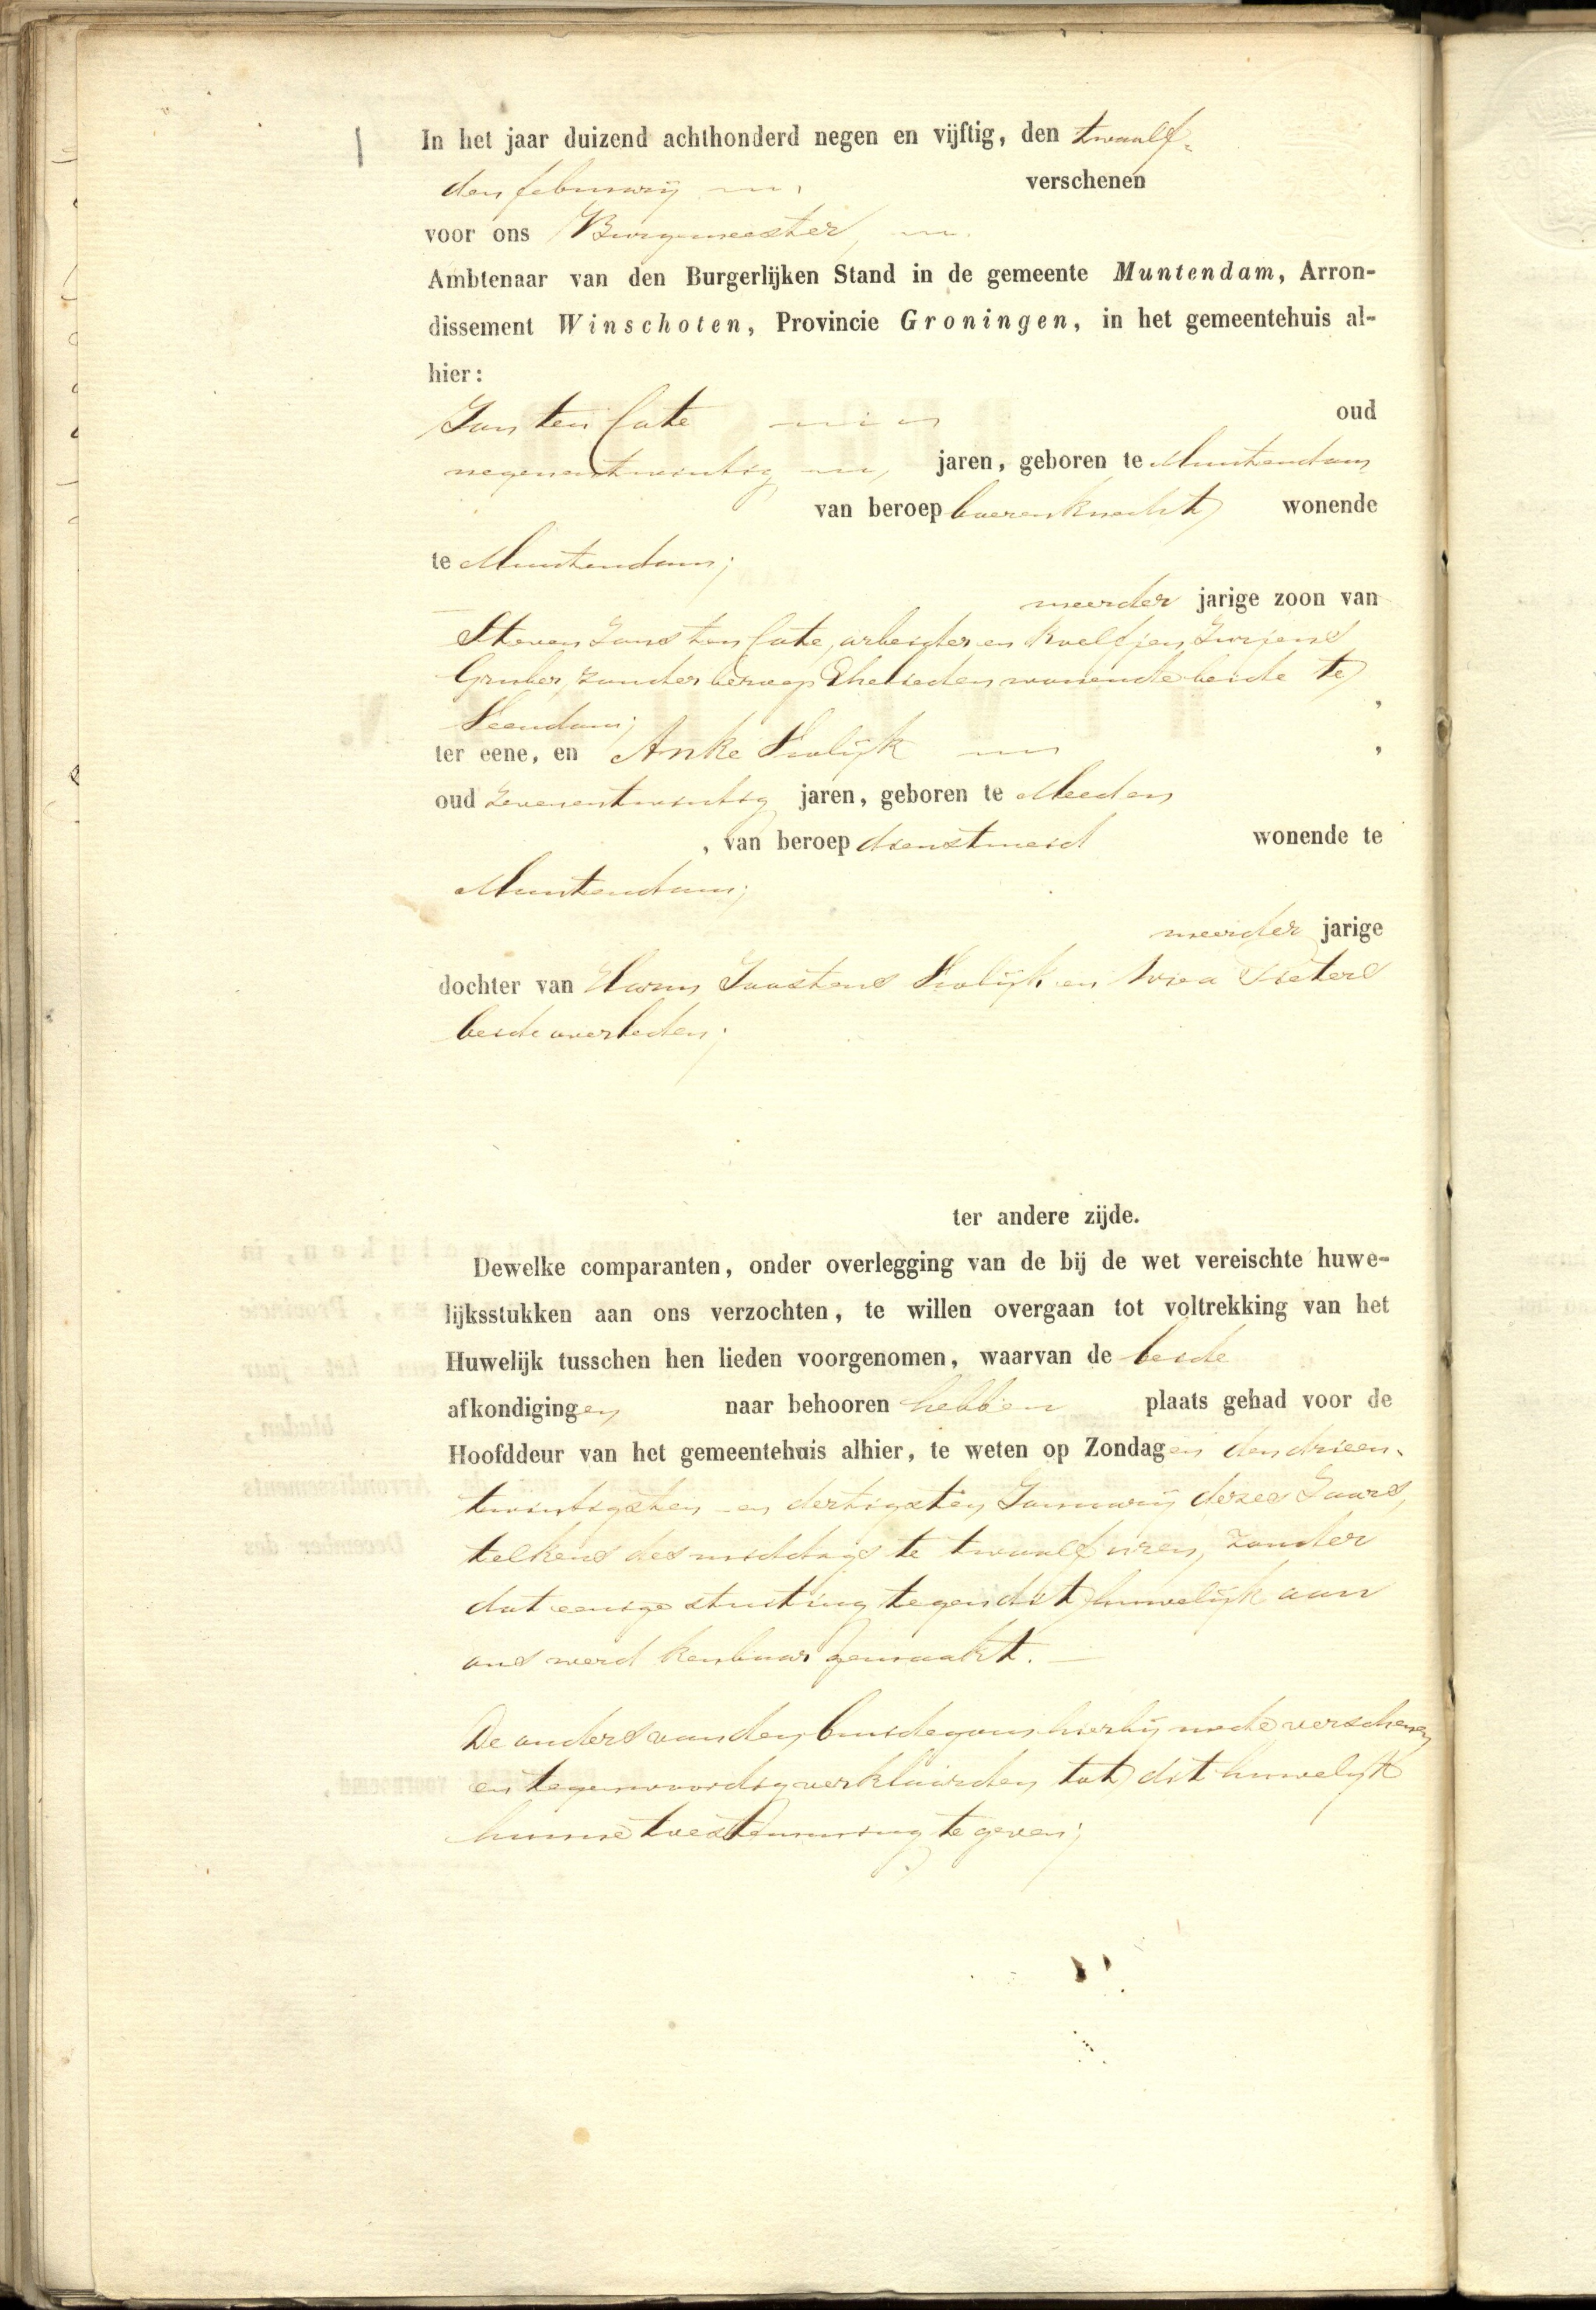 In het jaar duizend achthonderd negen en vijftig, den twaalf-
den februarij verschenen
voor ons Burgemeester,
Ambtenaar van den Burgerlijken Stand in de gemeente Muntendam, Arron-
dissement Winschoten, Provincie Groningen, in het gemeentehuis al-
hier:
Jan ten Cate oud
negenentwintig jaren, geboren te Muntendam
van beroep boerenknecht wonende
te Muntendam;
meerder jarige zoon van
Steven Jans ten Cate, arbeider en Roelfjen Jurjens
Gruber, zonder beroep Ehelieden wonende beide te
Veendam; ,
ter eene, en Anke Vrolijk ,
oud zevenentwintig jaren, geboren te Meeden
, van beroep dienstmeid wonende te
Muntendam;
meerder jarige
dochter van Harm Joostens Vrolijk en Pieters
beide overleden;
ter andere zijde.
Dewelke comparanten, onder overlegging van de bij de wet vereischte huwe-
lijksstukken aan ons verzochten, te willen overgaan tot voltrekking van het
Huwelijk tusschen hen lieden voorgenomen, waarvan de beide
afkondigingen naar behooren hebben plaats gehad voor de
Hoofddeur van het gemeentehuis alhier, te weten op Zondagen den drieen-
twintigsten en dertigsten Januarij dezes Jaars,
telkens des middags te twaalf uren, zonder
dat eenige stuiting tegen dit huwelijk aan
ons werd kenbaar gemaakt.
De ouders van den bruidegom hierbij mede verschenen
en tegenwoordig verklaarden tot dit huwelijk
hunne toestemming te geven;